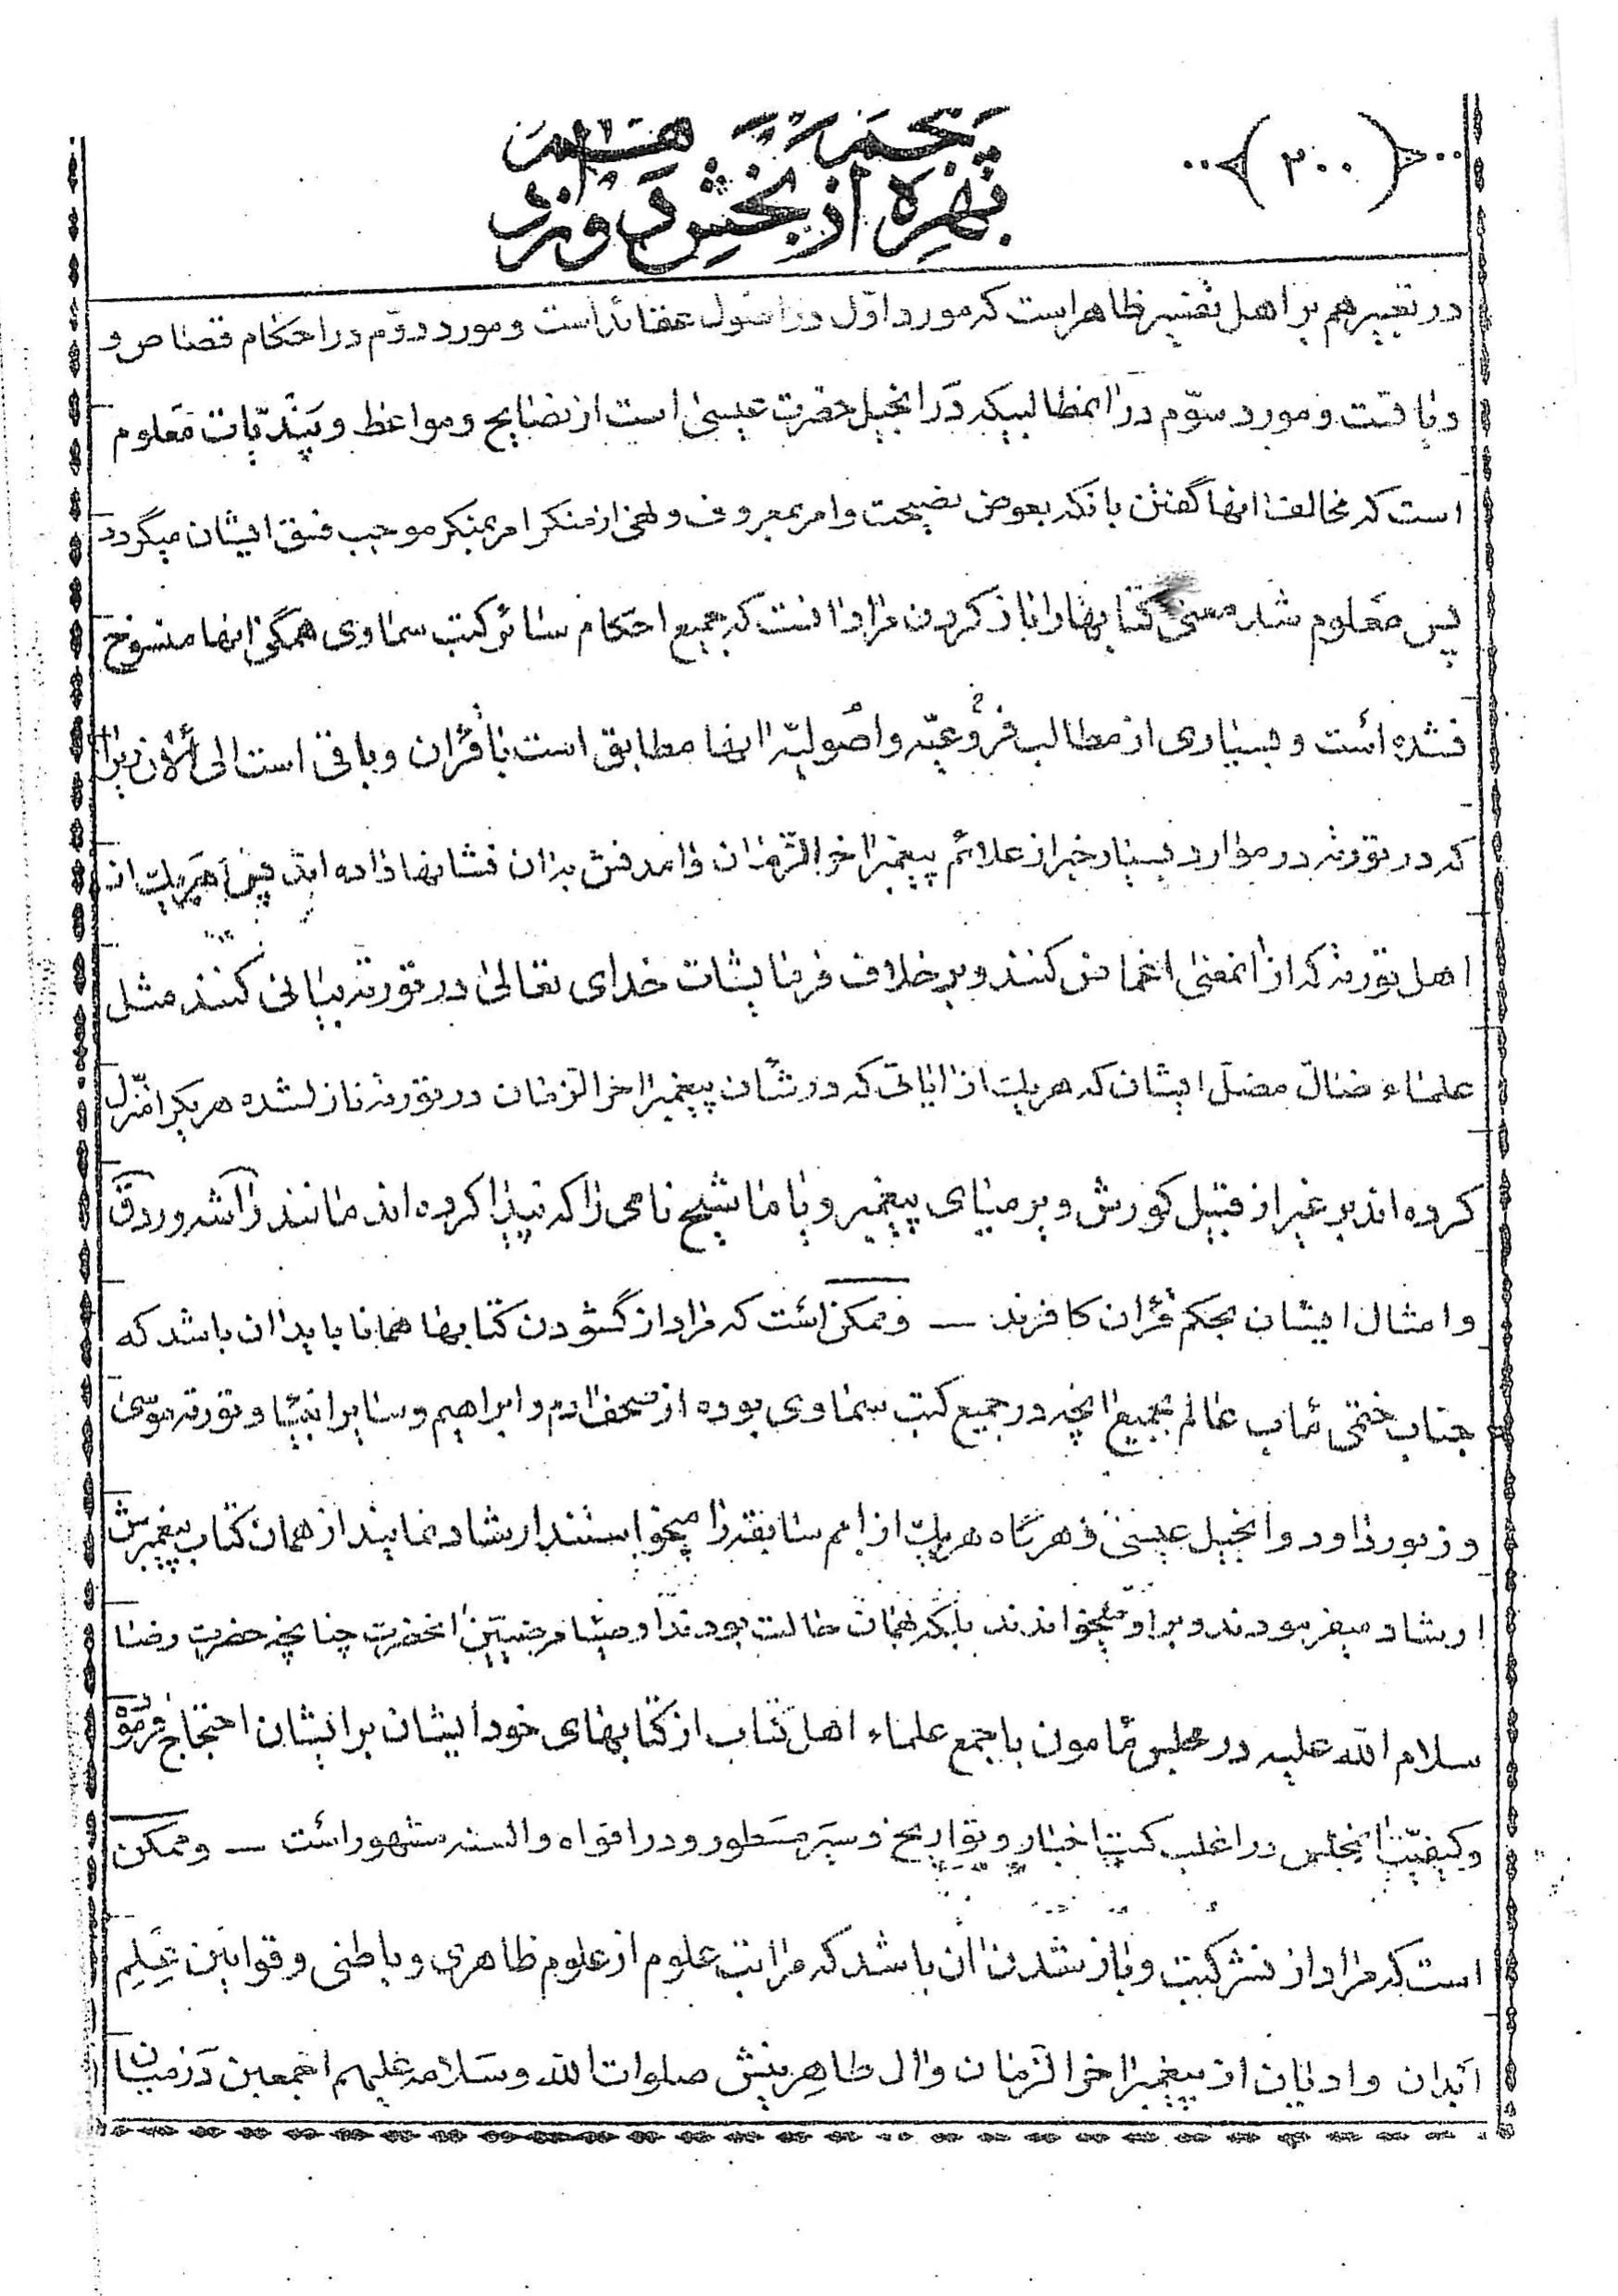 (۲۰۰)
بهره از بخش دوم
در تعبیر هم بر اهل تفسیر ظاهر است که مورد اوّل در اصول عقائد است و مورد دوّم در احکام قصاص و
و یا قت و مورد سوّم در انمطالبیکه در انجیل حضرت عیسی است از نصایح و مواعظ و پندیّات معلوم
است که مخالف انها گفتن بانکه بعوض نصیحت و امر بمعروف و نهی از منکر امر بمنکر موجب فسق ایشان میگردد
پس معلوم شد معنی کتابها را باز کردن مراد انست که جمیع احکام سائر کتب سماوی همگی انها منسوخ
نشده است و بسیاری از مطالب فروعیّه و اصولیّه انها مطابق است با قرآن و باقی است الی الآن زیرا
که در توریة در موارد بسیار خبر از علائم پیغمبر اخر الزّمان و امدنش بدان نشانها داده اند پس هر یک از
اهل توریة که از انمعنی اغماض کنند و بر خلاف فرمایشات خدای تعالی در توریة بیانی کنند مثل
علماء ضالّ مضلّ ایشان که هر یک از ایاتی که در شان پیغمبر اخر الزمان در توریة نازلشده هر یک را منزل
کرده اند بر غیر از قبیل کورش و یرمیای پیغمبر و یا ماشیح نامی را که پیدا کرده اند مانند راشه وردق
و امثال ایشان بحکم قرآن کافرند ـــ و ممکن است که مراد از گشودن کتابها همانا باید ان باشد که
جناب ختمی مآب عالم بجمیع انچه در جمیع کتب سماوی بوده از صحف ادم و ابراهیم و سایر انبیا و توریة موسی
و زبور داود و انجیل عیسی و هر گاه هر یک از امم سابقه را میخواستند ارشاد نمایند از همان کتاب پیغمبرش
ارشاد میفرمودند و بر او میخواندند بلکه بهمان حالت بودند اوصیاء مرضیّین انحضرت چنانچه حضرت رضا
سلام الله علیه در مجلس مامون با جمع علماء اهل کتاب از کتابهای خود ایشان بر ایشان احتجاج فرموده
و کیفیّت انمجلس در اغلب کتب اخبار و تواریخ و سیر مسطور و در افواه و السنه مشهور است ـــ و ممکن
است که مراد از نشر کتب و باز شدن ان باشد که مراتب علوم از علوم ظاهری و باطنی و قوانین علم
ابدان و ادیان از پیغمبر اخر الزمان و ال طاهرینش صلوات الله و سلامه علیهم اجمعین در زمان